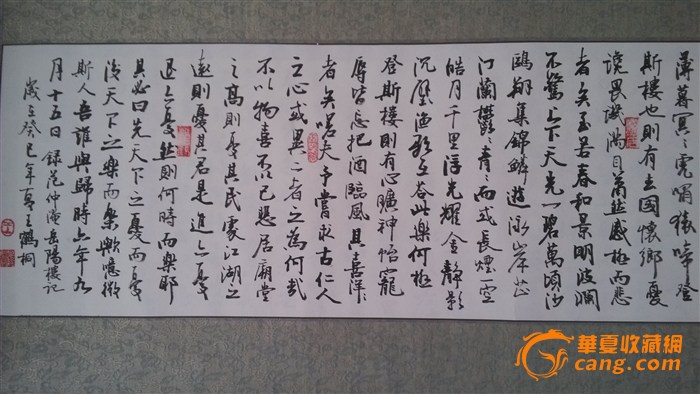 薄暮冥々虎嘯猿啼登
斯樓也則有去國懷鄉憂
讒畏譏滿目蕭然感極而悲
者矣至若春和景明波瀾
不驚上下天光一碧萬頃沙
鷗翔集錦鱗遊泳岸芷
汀蘭鬱々青々而或長煙一空
皓月千里浮光耀金靜影
沉璧漁歌互答此樂何極
登斯樓則有心曠神怡寵
辱皆忘把酒臨風其喜洋々
者矣嗟夫予嘗求古仁人
之心或異二者之為何哉
不以物喜不以己悲居廟堂
之高則憂其民處江湖之
遠則憂其君是進亦憂
退亦憂然則何時而樂耶
其必曰先天下之憂而憂
後天下之樂而樂歟噫微
斯人吾誰與歸時六年九
月十五日錄范仲淹岳陽樓記
歲在癸巳年夏王鶴桐
華夏收藏網
cang.com